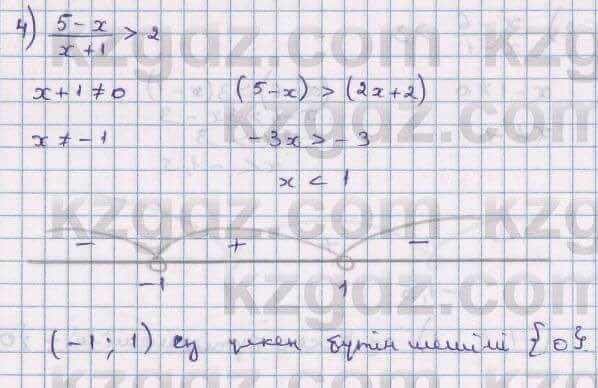 4) (5-x)/(x+1) > 2
x+1≠0 (5-x) > (2x+2)
x≠-1 -3x > -3
x < 1
- + -
-1 1
(-1; 1) ең үлкен бүтін шешімі {0}.
kzgdz.com